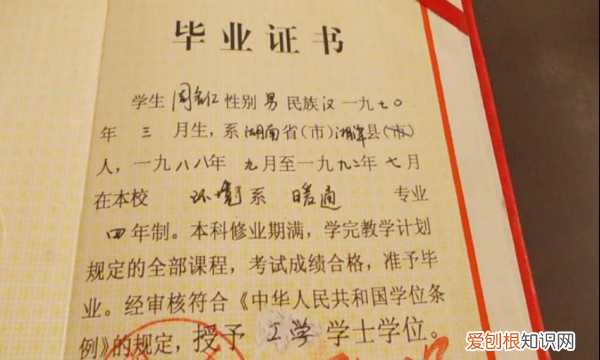 毕业证书
学生 周 仁 性别 男 民族 汉 一九七〇
年 三 月生，系 湖南 省(市) 湘潭 县(市)
人，一九八八年 九 月至一九九二年 七 月
在本校 环境 系 暖通 专业
四 年制。本科修业期满，学完教学计划
规定的全部课程，考试成绩合格，准予毕
业。经审核符合《中华人民共和国学位条
例》的规定，授予 工学 学士学位。
爱刨根知识网